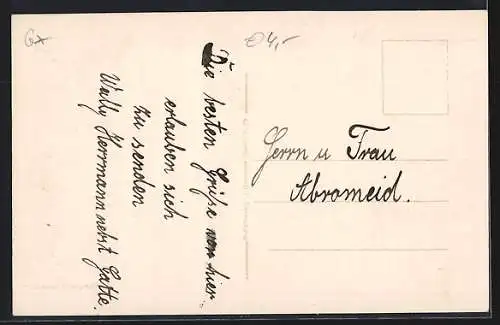 Gx
04,-
Die besten Grüße von hier
erlauben sich
zu senden
Wally Herrmann nebst Gatte.
Herrn u Frau
Abromeid.